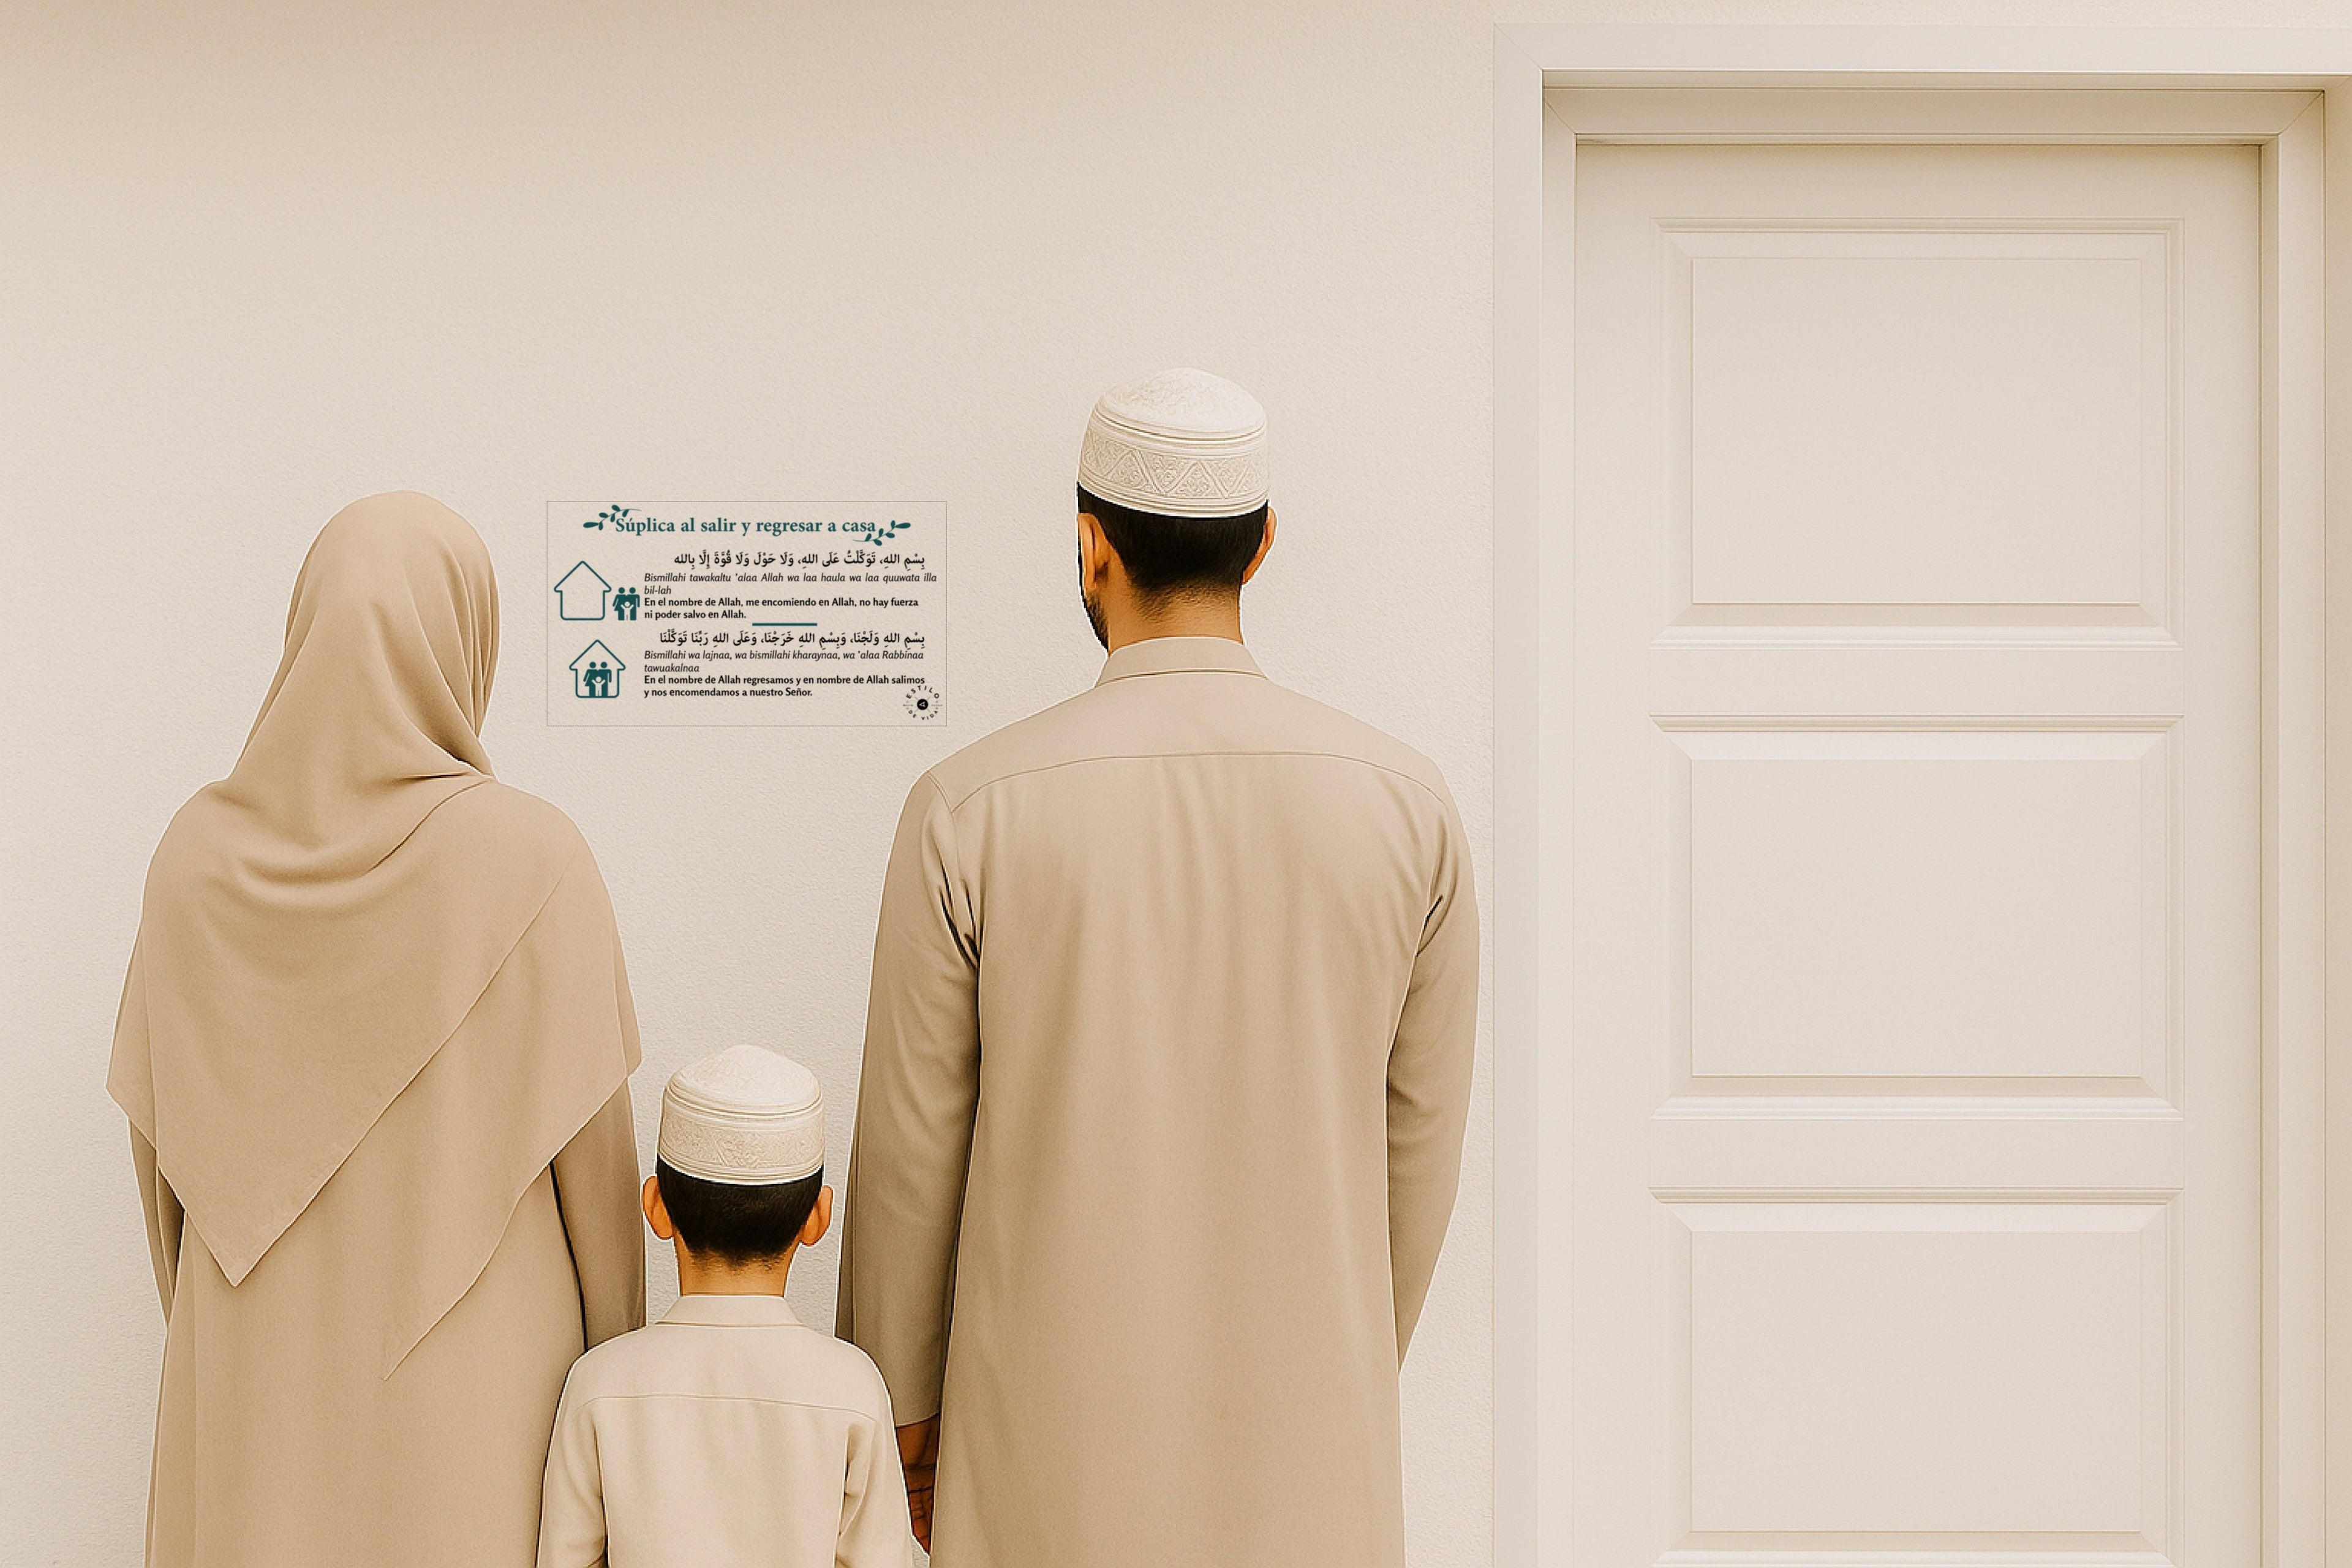 Súplica al salir y regresar a casa
بِسْمِ اللهِ، تَوَكَّلْتُ عَلَى اللهِ، وَلَا حَوْلَ وَلَا قُوَّةَ إِلَّا بِالله
Bismillahi tawakaltu ‘alaa Allah wa laa haula wa laa quuwata illa
bil-lah
En el nombre de Allah, me encomiendo en Allah, no hay fuerza
ni poder salvo en Allah.
بِسْمِ اللهِ وَلَجْنَا، وَبِسْمِ اللهِ خَرَجْنَا، وَعَلَى اللهِ رَبِّنَا تَوَكَّلْنَا
Bismillahi wa lajnaa, wa bismillahi kharaynaa, wa ‘alaa Rabbinaa
tawuakalnaa
En el nombre de Allah regresamos y en nombre de Allah salimos
y nos encomendamos a nuestro Señor.
ESTILO
DE VIDA